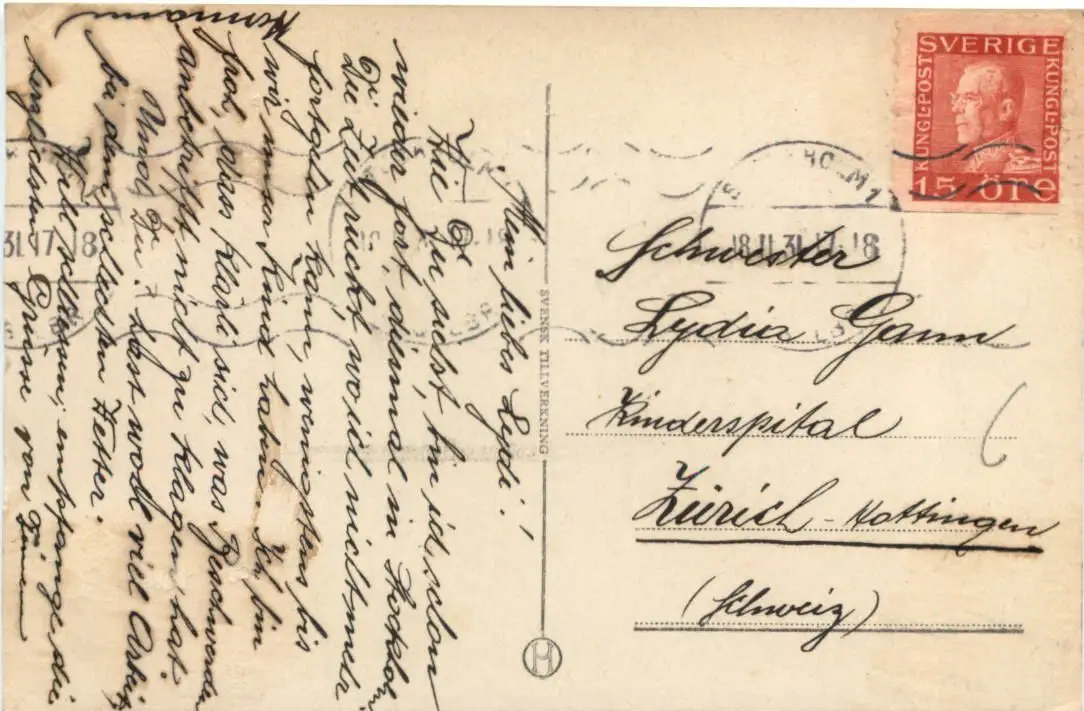 Mein liebes Lydi!
Wie Du siehst, bin ich schon
wieder fort, diesmal in Stockholm
Die Zeit rückt, wo ich nicht mehr
fortgehen kann, wenigstens bis
wir immer Kind haben. Ich bin
froh, dass Klärli sich, was Beschwerden
anbetrifft, nicht zu klagen hat.
Und Du? hast wohl viel Arbeit
bei dem schlechten Wetter.
Herzl. empfange die
herzlichsten Grüsse von
Hermann
SVENSK TILLVERKNING
SVERIGE
KUNGL-POST
KUNGL-POST
15 ÖTE
18.11.31.17-18
31.17-18
Schwester
Lydia Gann
Kinderspital
Zürich - Hottingen
(Schweiz)
H